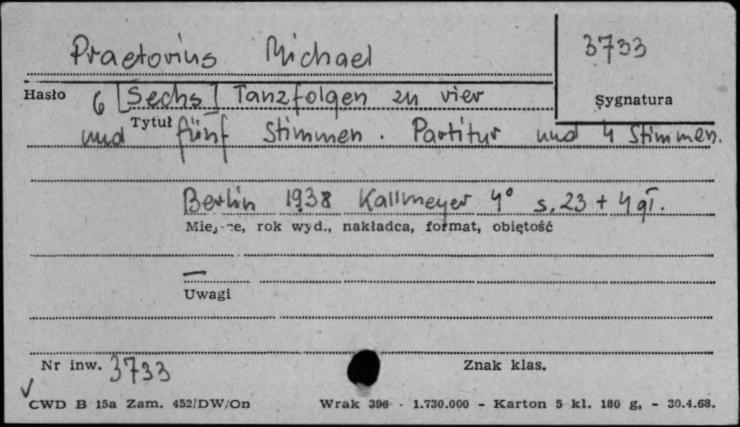 Praetorius Michael
3733
Hasło
6 [Sechs] Tanzfolgen zu vier
Sygnatura
Tytuł
und fünf Stimmen. Partitur und 4 Stimmen.
Berlin 1938 Kallmeyer 4° s. 23 + 4 gł.
Miejsce, rok wyd., nakładca, format, objętość
—
Uwagi
Nr inw. 3733
Znak klas.
✓
CWD B 15a Zam. 452/DW/On Wrak 396 - 1.730.000 - Karton 5 kl. 180 g, - 30.4.68.